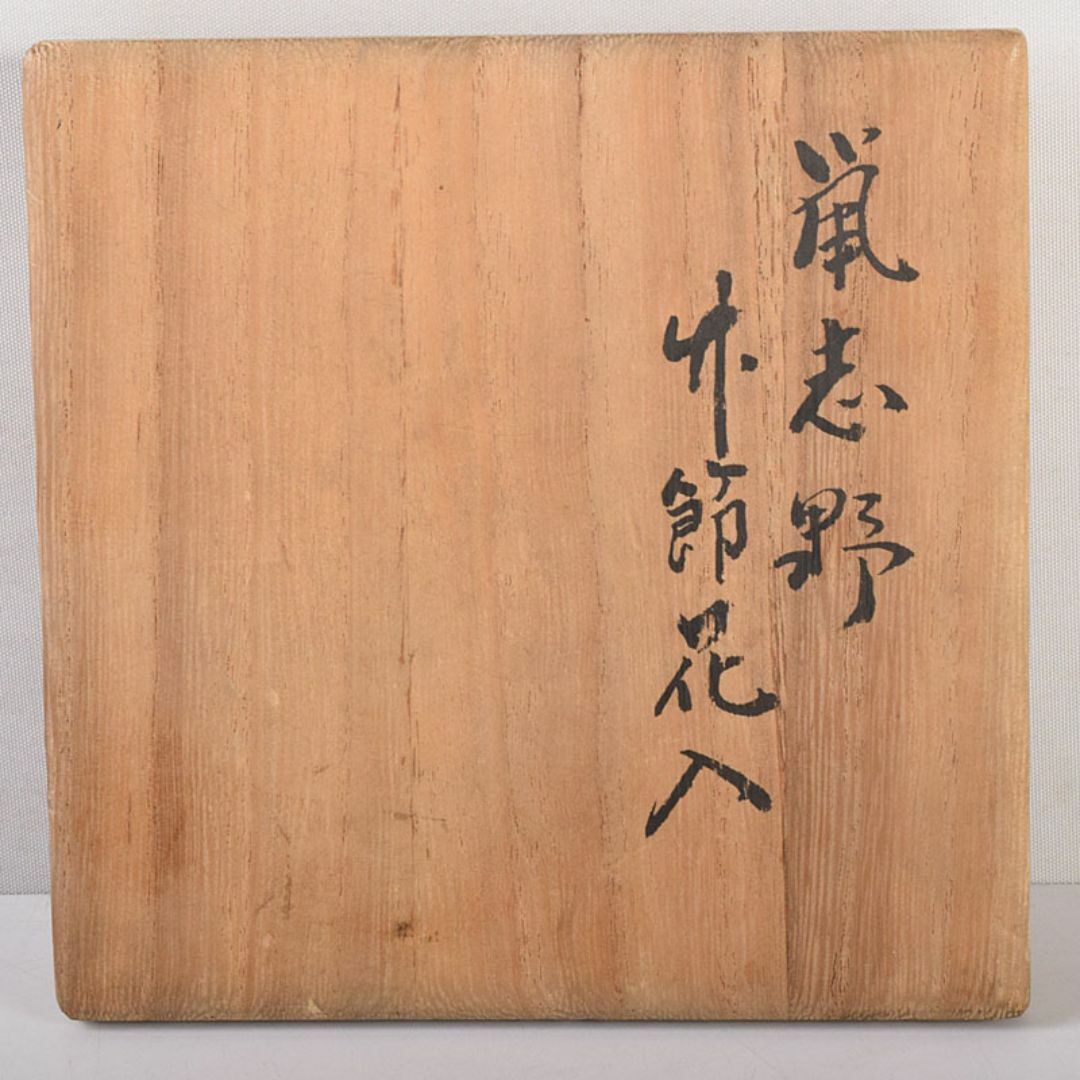 鼠志野
竹節花入